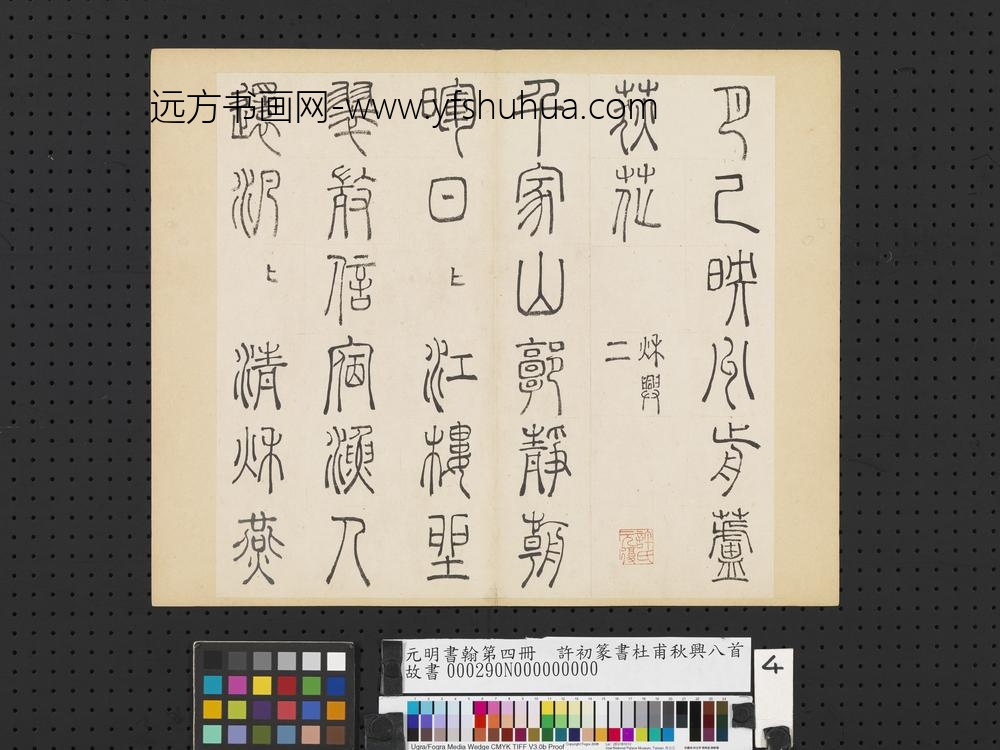 远方书画网-www.yfshuhua.com
月已映洲前蘆
荻花
秌興
二
許氏
元復
千家山郭靜朝
暉日〻江樓坐
翠微信宿漁人
還汎〻清秌燕
元明書翰第四冊　許初篆書杜甫秋興八首
故書 000290N000000000
4
Ugra/Fogra Media Wedge CMYK TIFF V3.0b Proof